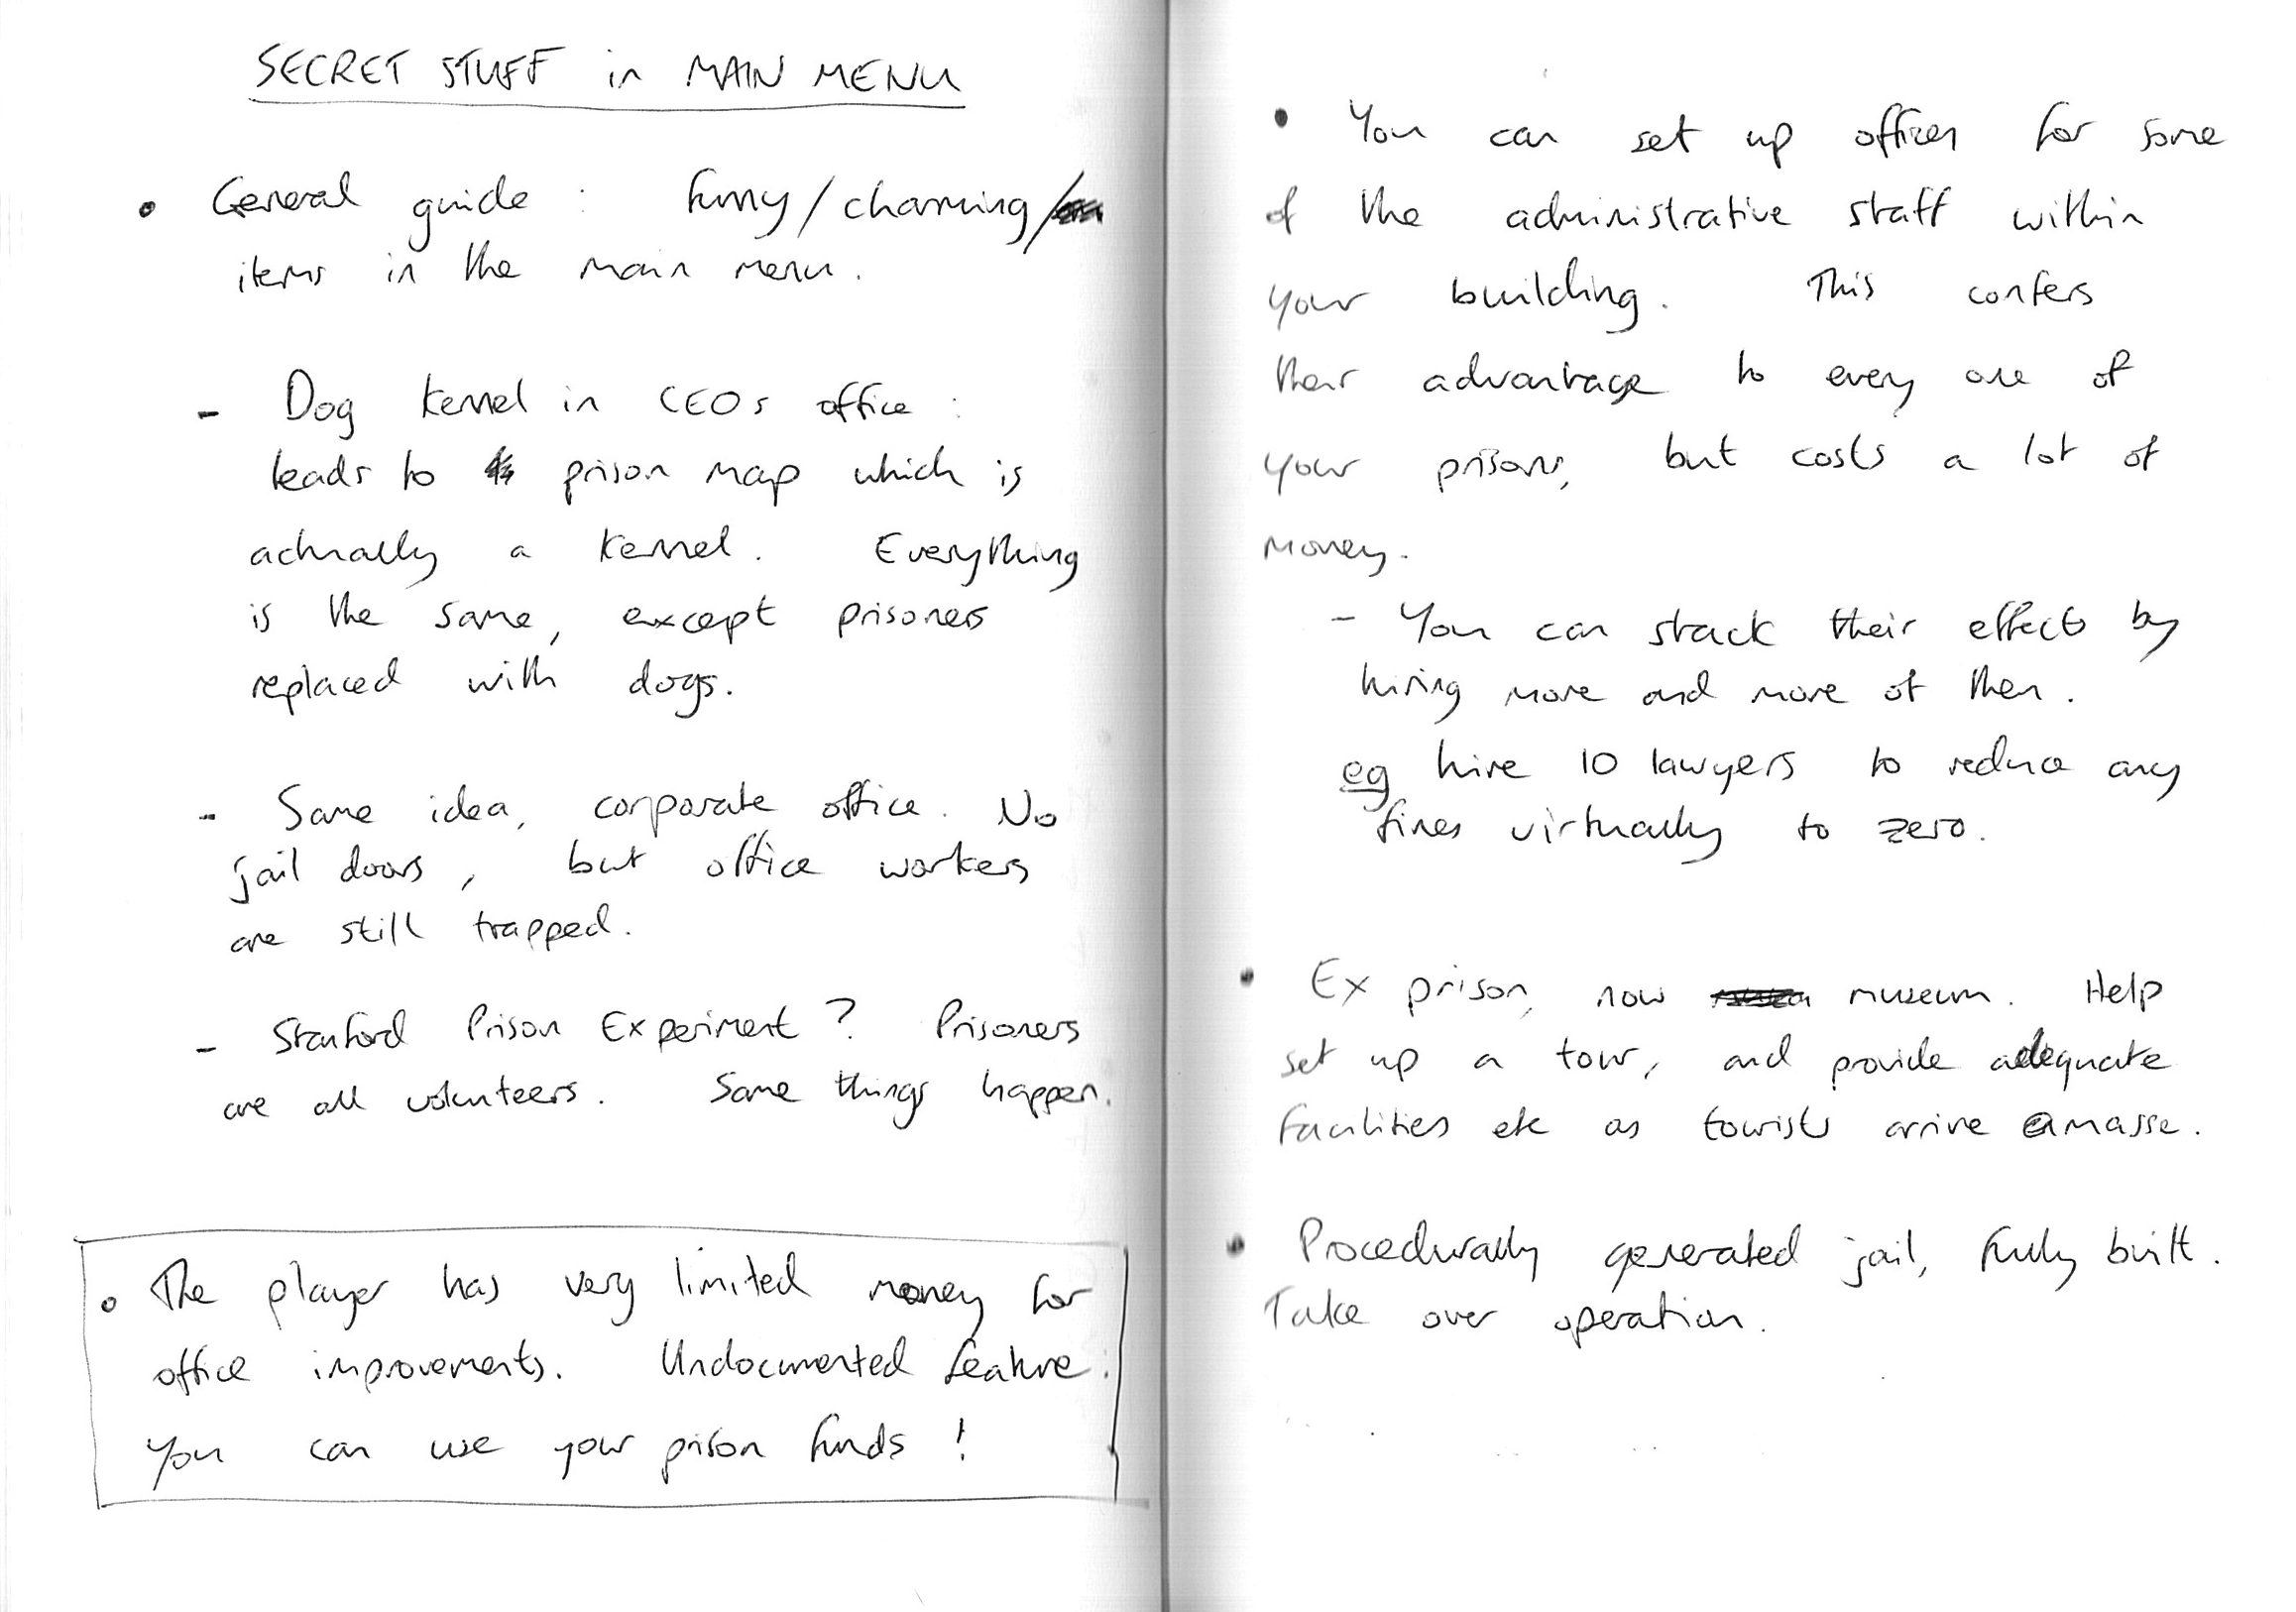 SECRET STUFF in MAIN MENU
• General guide : funny/charming/
items in the main menu.
- Dog Kennel in CEOs office :
leads to prison map which is
actually a kennel. Everything
is the same, except prisoners
replaced with dogs.
- Same idea, corporate office. No
jail doors, but office workers
are still trapped.
- Stanford Prison Experiment? Prisoners
are all volunteers. Same things happen.
• The player has very limited money for
office improvements. Undocumented feature:
You can use your prison funds!
• You can set up offices for some
of the administrative staff within
your building. This confers
their advantage to every one of
your prisons, but costs a lot of
money.
- You can stack their effects by
hiring more and more of them.
eg hire 10 lawyers to reduce any
fines virtually to zero.
• Ex prison, now museum. Help
set up a tour, and provide adequate
facilities etc as tourists arrive emasse.
• Procedurally generated jail, fully built.
Take over operation.